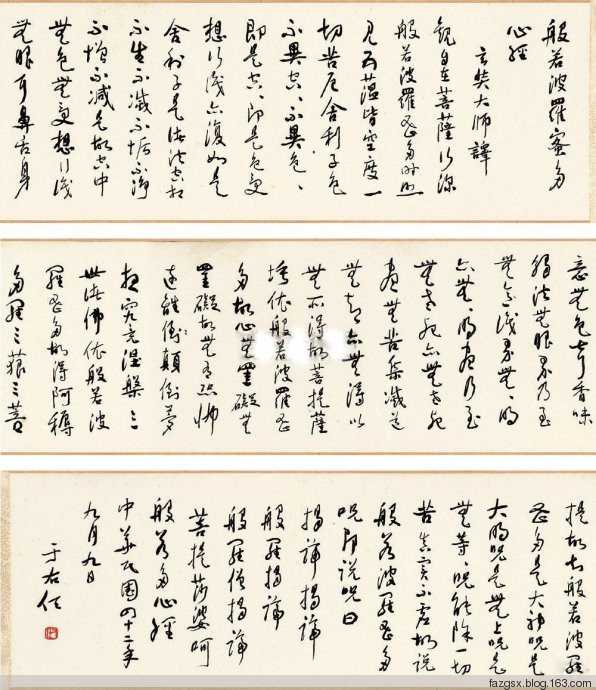 般若波羅蜜多
心經
玄奘大師譯
觀自在菩薩行深
般若波羅蜜多時照
見五蘊皆空度一
切苦厄舍利子色
不異空、不異色、
即是空、即是色受
想行識亦復如是
舍利子是諸法空相
不生不滅不垢不淨
不增不減是故空中
無色無受想行識
無眼耳鼻舌身
意無色聲香味
觸法無眼界乃至
無意識界無、明
亦無、明盡乃至
無老死亦無老死
盡無苦集滅道
無智亦無得以
無所得故菩提薩
埵依般若波羅蜜
多故心無罣礙無
罣礙故無有恐怖
遠離倒顛倒夢
想究竟涅槃三
世諸佛依般若波
羅蜜多故得阿耨
多羅三藐三菩
提故知般若波羅
蜜多是大神咒是
大明咒是無上咒是
無等、咒能除一切
苦真實不虛故說
般若波羅蜜多
咒即說咒曰
揭諦揭諦
般羅揭諦
般羅僧揭諦
菩提莎婆呵
般若多心經
中華民國四十二年
九月九日
于右任
fazgsx.blog.163.com